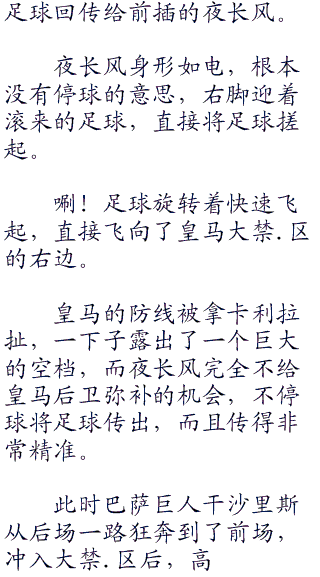 足球回传给前插的夜长风。
夜长风身形如电，根本
没有停球的意思，右脚迎着
滚来的足球，直接将足球搓
起。
唰！足球旋转着快速飞
起，直接飞向了皇马大禁.区
的右边。
皇马的防线被拿卡利拉
扯，一下子露出了一个巨大
的空档，而夜长风完全不给
皇马后卫弥补的机会，不停
球将足球传出，而且传得非
常精准。
此时巴萨巨人干沙里斯
从后场一路狂奔到了前场，
冲入大禁.区后，高